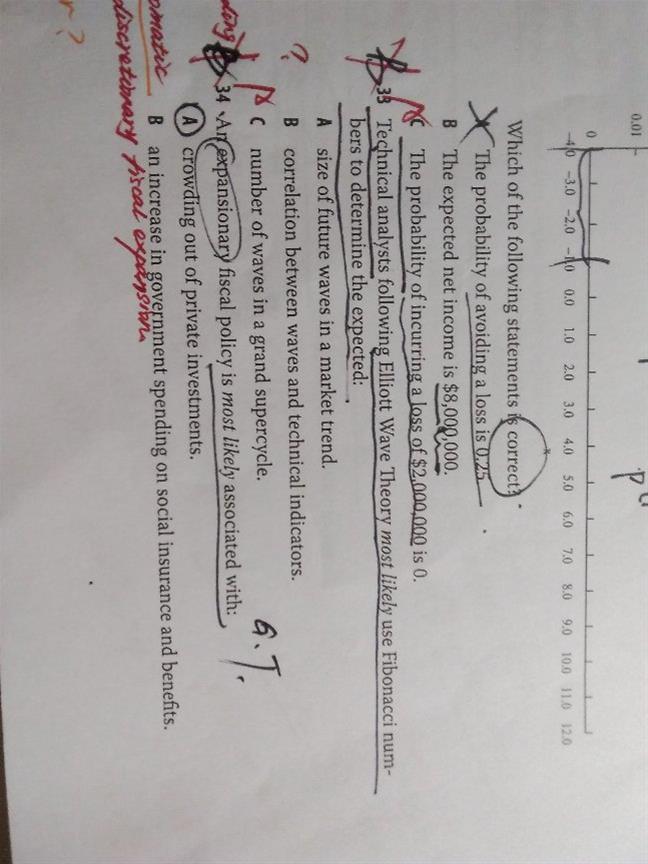 0.01
0
-4.0 -3.0 -2.0 -1.0 0.0 1.0 2.0 3.0 4.0 5.0 6.0 7.0 8.0 9.0 10.0 11.0 12.0
Which of the following statements is correct?
The probability of avoiding a loss is 0.25.
B The expected net income is $8,000,000.
C The probability of incurring a loss of $2,000,000 is 0.
33 Technical analysts following Elliott Wave Theory most likely use Fibonacci num-
bers to determine the expected:
A size of future waves in a market trend.
B correlation between waves and technical indicators.
?
C number of waves in a grand supercycle.
34 An expansionary fiscal policy is most likely associated with: G.T.
A crowding out of private investments.
B an increase in government spending on social insurance and benefits.
discretionary fiscal expansion